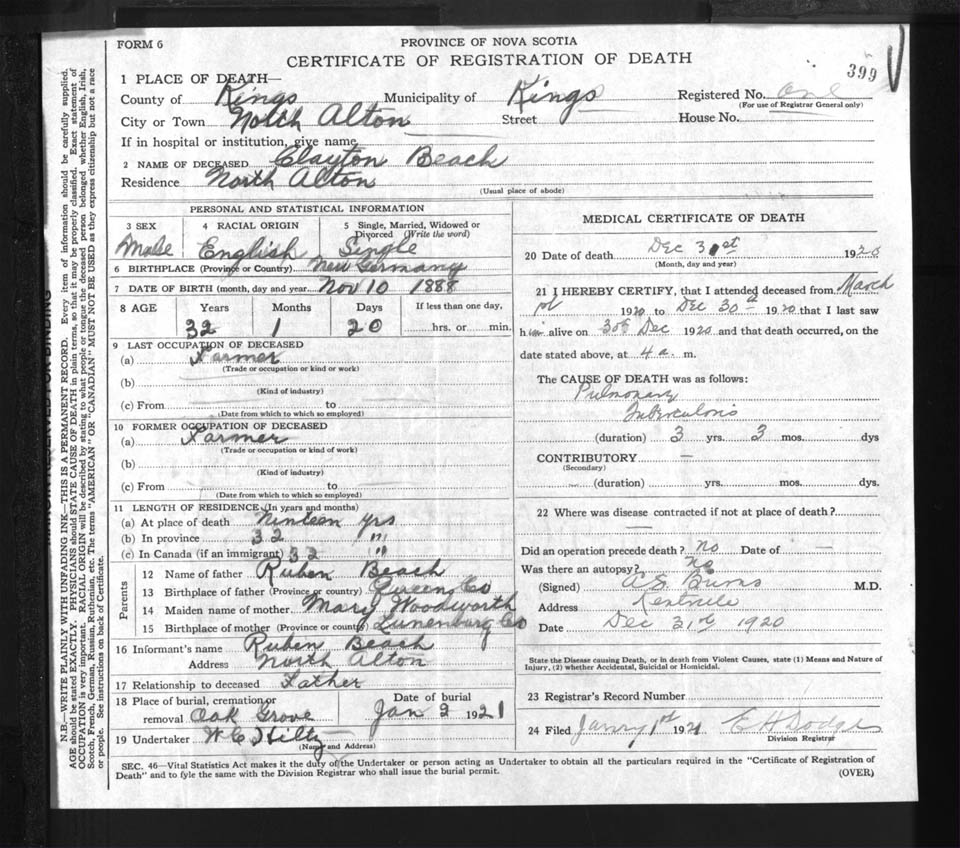 FORM 6
PROVINCE OF NOVA SCOTIA
CERTIFICATE OF REGISTRATION OF DEATH
399
1 PLACE OF DEATH—
County of Kings Municipality of Kings Registered No. one
(For use of Registrar General only)
City or Town North Alton Street House No.
If in hospital or institution, give name
2 NAME OF DECEASED Clayton Beach
Residence North Alton
(Usual place of abode)
PERSONAL AND STATISTICAL INFORMATION
3 SEX 4 RACIAL ORIGIN 5 Single, Married, Widowed or Divorced (Write the word)
Male English Single
6 BIRTHPLACE (Province or Country) New Germany
7 DATE OF BIRTH (month, day and year) Nov 10 1888
8 AGE Years Months Days If less than one day,
32 1 20 hrs. or min.
9 LAST OCCUPATION OF DECEASED
(a) Farmer
(Trade or occupation or kind or work)
(b)
(Kind of industry)
(c) From to
(Date from which to which so employed)
10 FORMER OCCUPATION OF DECEASED
(a) Farmer
(Trade or occupation or kind of work)
(b)
(Kind of industry)
(c) From to
(Date from which to which so employed)
11 LENGTH OF RESIDENCE (In years and months)
(a) At place of death Ninteen yrs
(b) In province 32 "
(c) In Canada (if an immigrant) 32 "
Parents
12 Name of father Ruben Beach
13 Birthplace of father (Province or country) Queens Co
14 Maiden name of mother Mary Woodworth
15 Birthplace of mother (Province or country) Lunenburg Co
16 Informant's name Ruben Beach
Address North Alton
17 Relationship to deceased Father
18 Place of burial, cremation or removal Oak Grove Date of burial Jan 2 1921
19 Undertaker W C Hiltz
(Name and Address)
MEDICAL CERTIFICATE OF DEATH
20 Date of death Dec 31st 1920
(Month, day and year)
21 I HEREBY CERTIFY, that I attended deceased from March
1st 1920 to Dec 30th 1920 that I last saw
him alive on 30th Dec 1920 and that death occurred, on the
date stated above, at 4 a. m.
The CAUSE OF DEATH was as follows:
Pulmonary
Tuberculosis
(duration) 3 yrs. 3 mos. dys
CONTRIBUTORY —
(Secondary)
(duration) yrs. mos. dys.
22 Where was disease contracted if not at place of death?
—
Did an operation precede death? no Date of —
Was there an autopsy? no
(Signed) A.S. Burns M.D.
Address Kentville
Date Dec 31st 1920
State the Disease causing Death, or in death from Violent Causes, state (1) Means and Nature of
Injury, (2) whether Accidental, Suicidal or Homicidal.
23 Registrar's Record Number
24 Filed Janry 1st 1921 E H Dodge
Division Registrar
SEC. 46—Vital Statistics Act makes it the duty of the Undertaker or person acting as Undertaker to obtain all the particulars required in the "Certificate of Registration of
Death" and to fyle the same with the Division Registrar who shall issue the burial permit.
(OVER)
N.B.—WRITE PLAINLY WITH UNFADING INK—THIS IS A PERMANENT RECORD. Every item of information should be carefully supplied.
AGE should be stated EXACTLY. PHYSICIANS should STATE CAUSE OF DEATH in plain terms, so that it may be properly classified. Exact statement of
OCCUPATION is very important. RACIAL ORIGIN will be described by stating to what people or tongue the deceased person belonged whether English, Irish,
Scotch, French, German, Russian, Ruthenian, etc. The terms "AMERICAN" OR "CANADIAN" MUST NOT BE USED as they express citizenship but not a race
or people. See instructions on back of Certificate.